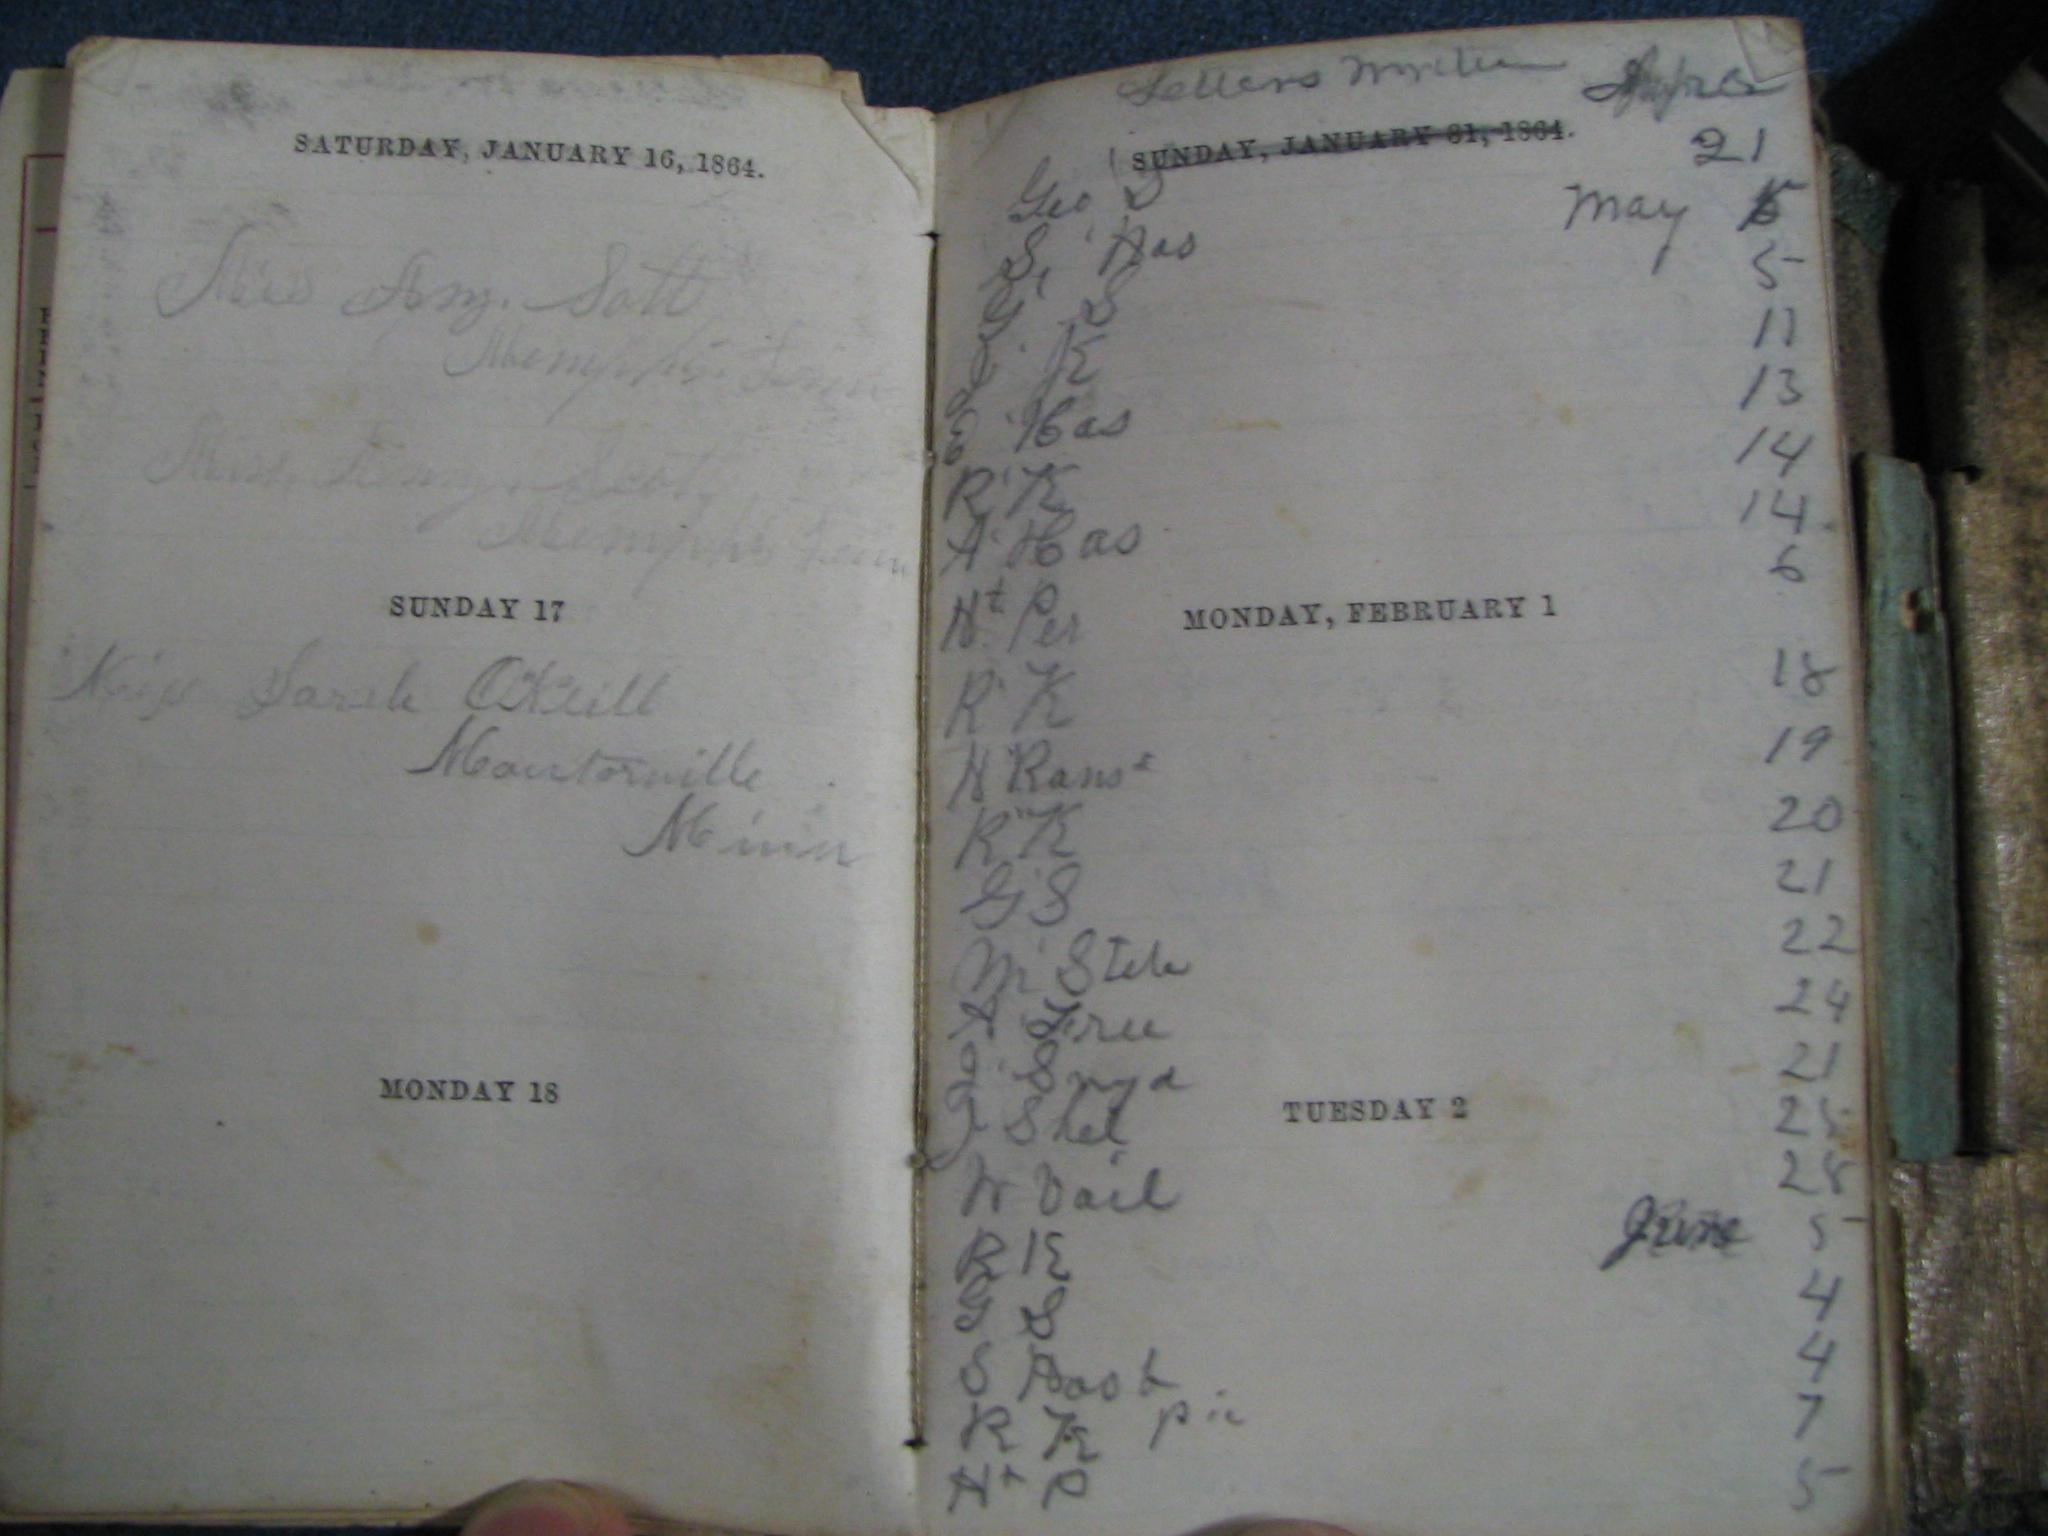 SATURDAY, JANUARY 16, 1864.
Miss Amy. Sott
Memphis. Tenn
Miss. Scott
Memphis Tenn
SUNDAY 17
Miss Sarah O'Neill
Mantorville
Minn
MONDAY 18
Letters Written
SUNDAY, JANUARY 31, 1864.
21
Geo S May 5
S, Has 5
G S 11
J. K 13
E Has 14
R. K 14
A Has 6
Nt. Per
MONDAY, FEBRUARY 1
R. K 18
N Rans 19
R K 20
G S 21
M Stele 22
Free 24
J. Snyd 21
J Shel 25
TUESDAY 2
W Vail 28
R K June 5
G S 4
S Hast 4
R K pic 7
N+ P 5